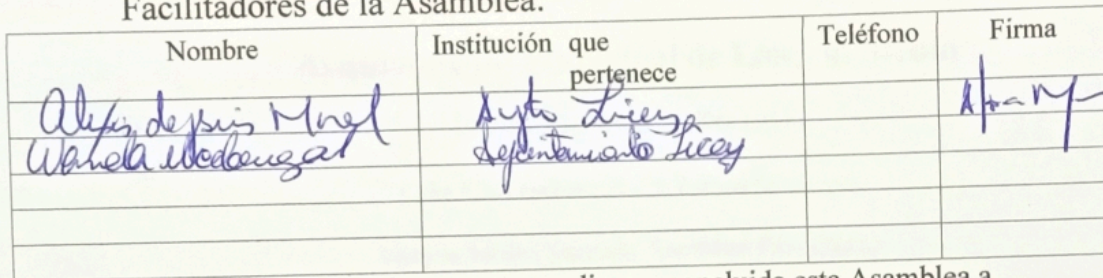 Facilitadores de la Asamblea.
Nombre Institución que pertenece Teléfono Firma
Alexis de Jesus Morel Ayto Licey
Wanda Ayuntamiento Licey
esta Asamblea a